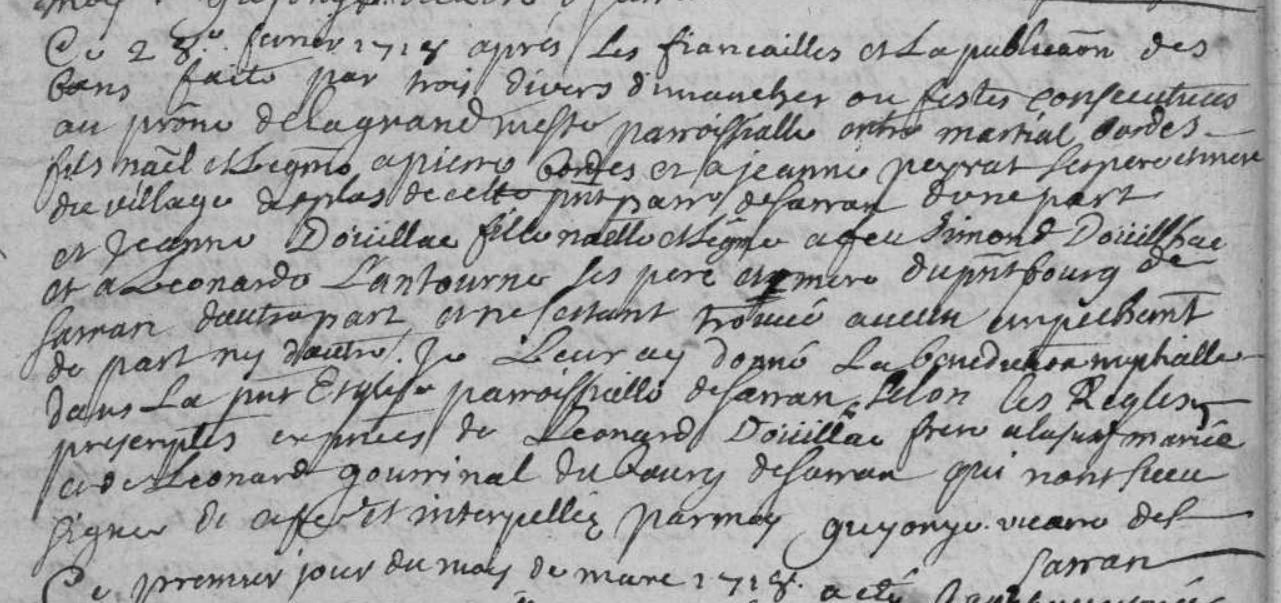 Ce 28e fevrier 1718 après les fiancailles et La publicaon des
bans faite par trois divers dimancher ou festes consecutives
au prône de la grand messe parroissialle entre martial bordes
fils nael et Legme a pierre bordes et a jeanne peyrat ses pere et mere
du village de cette pnt parre de Sarran dune part
et Jeanne Doüillac fille naelle et Legme a feu Simond Doüilhac
et a Leonarde Lantourne ses pere et mere du pnt bourg de
Sarran dautre part, et ne sestant trouvé aucun empechemt
de part ny dautre. Je Leur ay donné La benediction nuptialle
dans La pnt Esglise parroissielle de Sarran selon les Regles
prescriptes en pnces de Leonard Doüillac frere a la sus mariée
et de Leonard gourrinal du bourg de Sarran qui nont sceu
signer de ce et interpellez par moy guyonye vicaire de
Sarran
Ce premier jour du moy de mars 1718. a esté